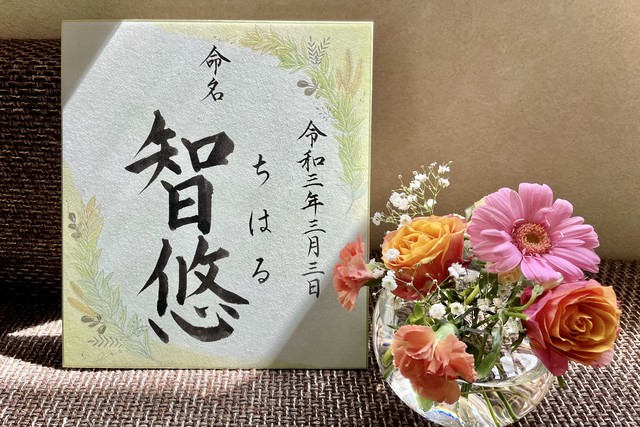 令和三年三月三日
命名
ちはる
智悠